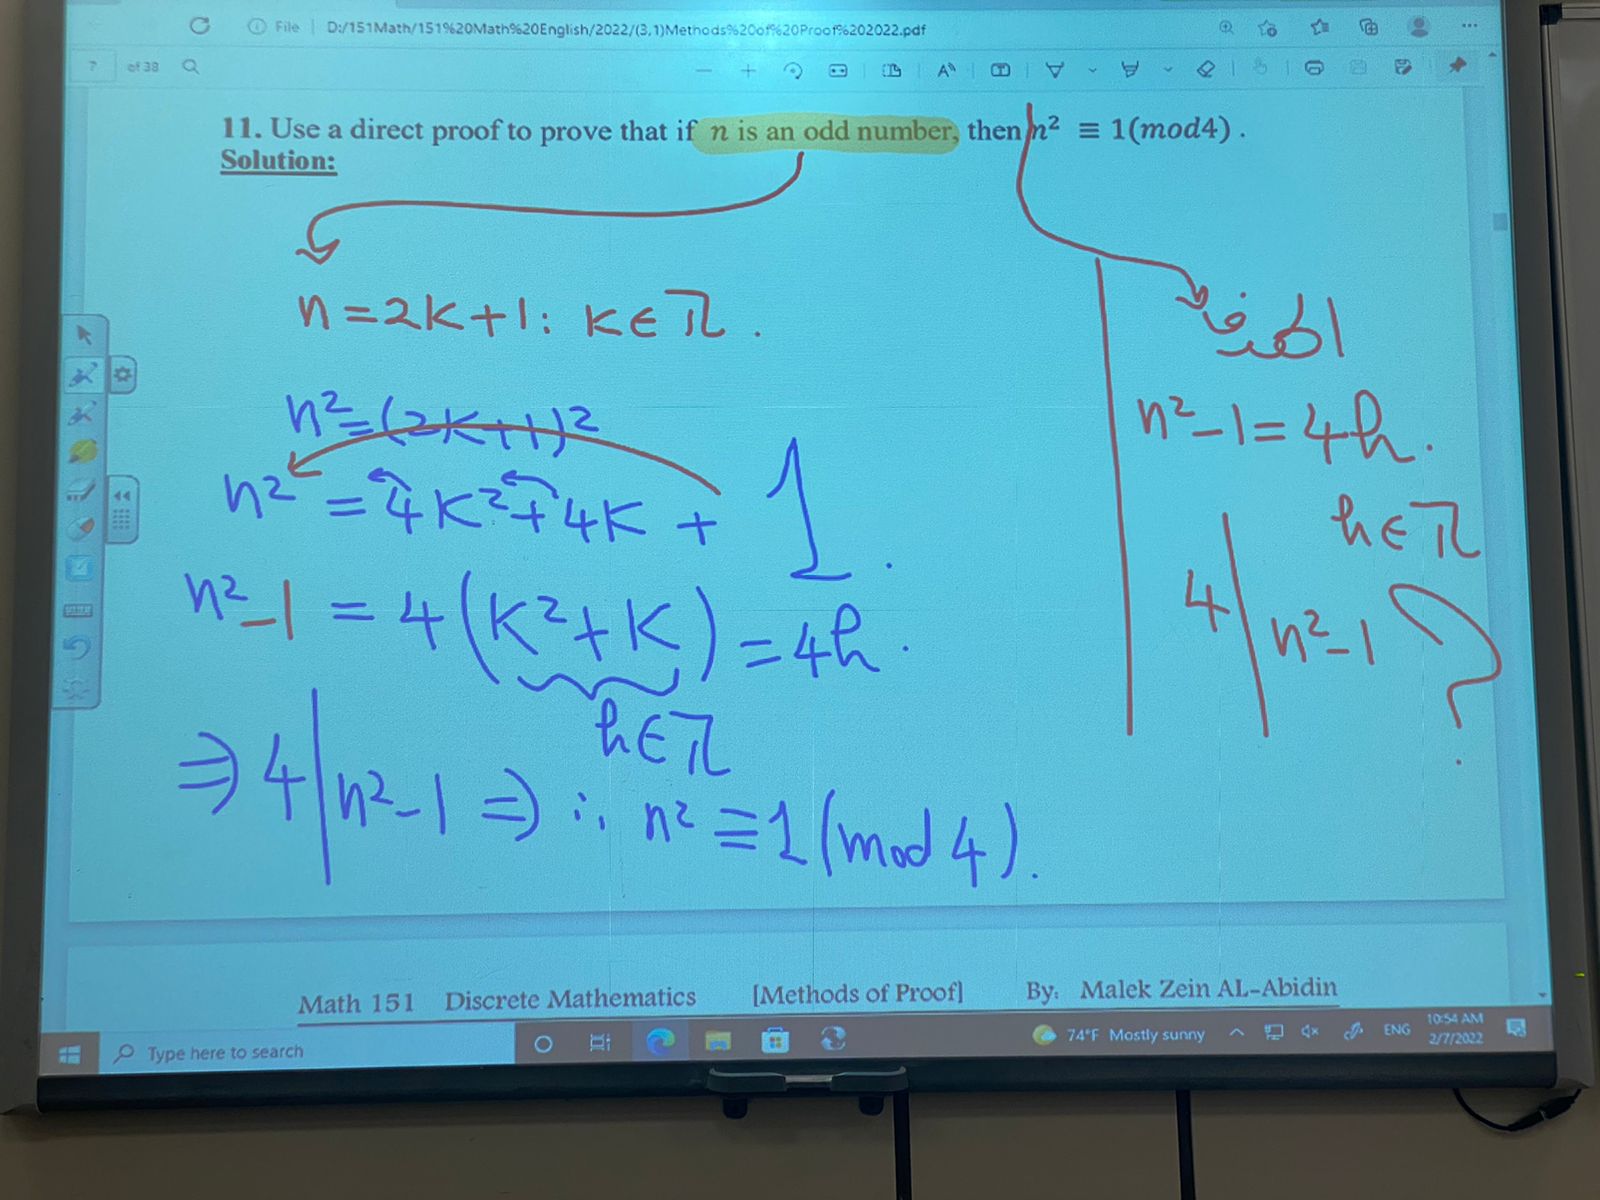 File | D:/151Math/151%20Math%20English/2022/(3,1)Methods%20of%20Proof%202022.pdf
? of 38
11. Use a direct proof to prove that if n is an odd number, then n² ≡ 1(mod4) .
Solution:
n = 2K+1 : K ∈ ℤ .
الهدف
n² = (2K+1)²
n² - 1 = 4h .
n² = 4K² + 4K + 1 .
h ∈ ℤ
n² - 1 = 4(K² + K) = 4h .
4 | n² - 1 ?
h ∈ ℤ
⇒ 4 | n² - 1 ⇒ ∴ n² ≡ 1 (mod 4) .
Math 151 Discrete Mathematics [Methods of Proof] By: Malek Zein AL-Abidin
Type here to search
74°F Mostly sunny
ENG
10:54 AM
2/7/2022